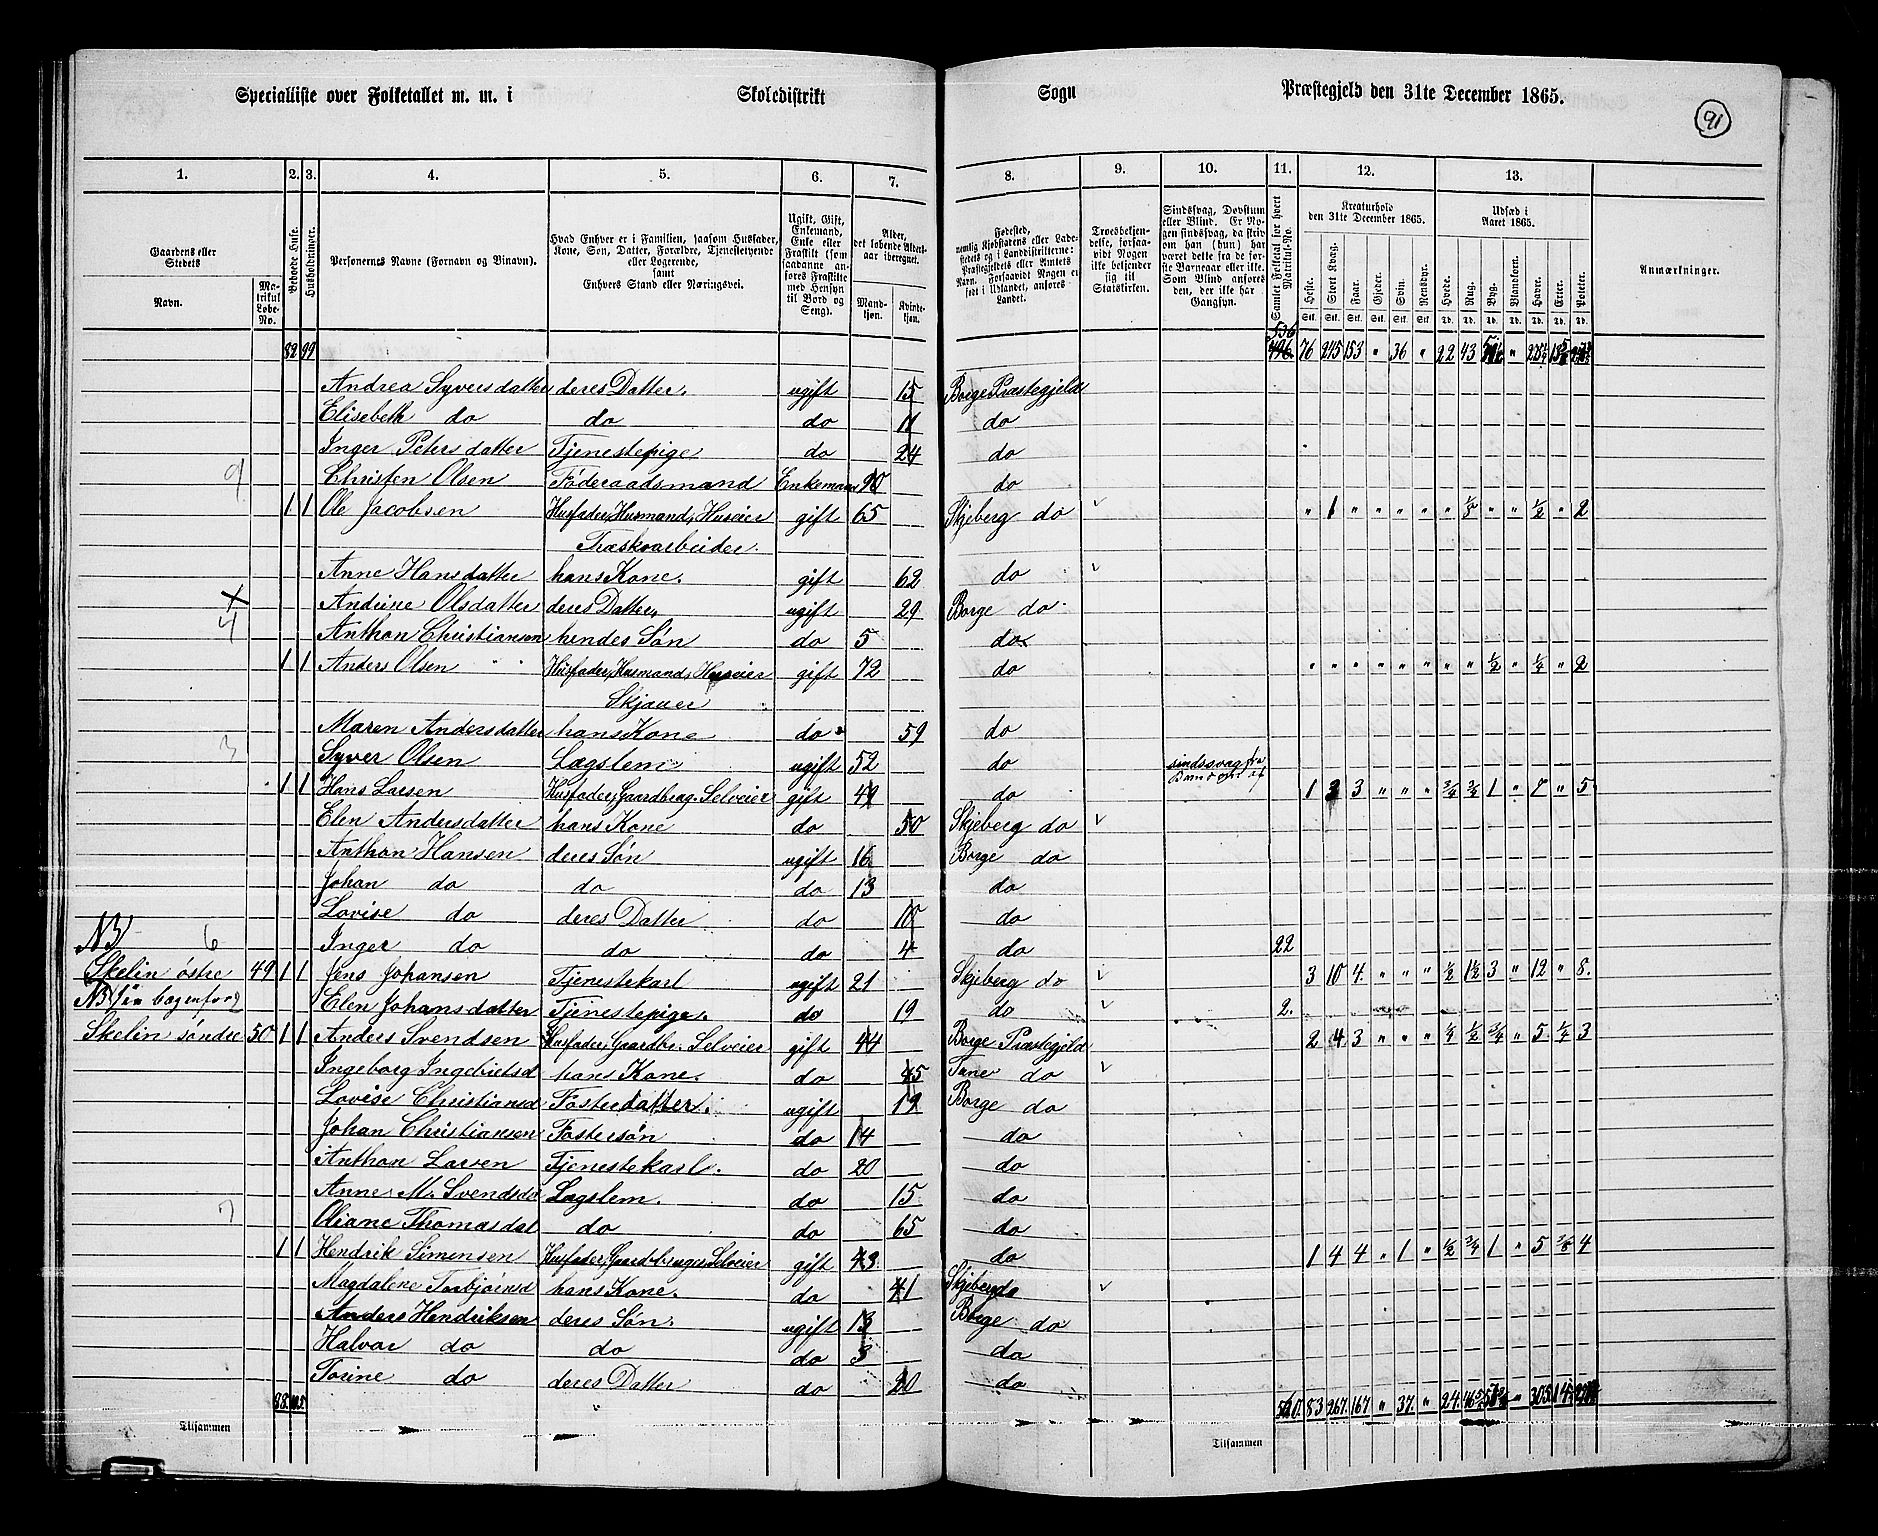 Specialliste over Folketallet m. m. i Skoledistrikt Sogn Præstegjeld den 31te December 1865.
91
1. 2. 3. 4. 5. 6. 7. 8. 9. 10. 11. 12. 13.
Gaardens eller Stedets Navn. Matrikul Løbe-No.
Beboede Huse.
Husholdninger.
Personernes Navne (Fornavn og Binavn).
Hvad Enhver er i Familien, saasom Husfader, Kone, Søn, Datter, Forældre, Tjenestetyende eller Logerende, samt Enhvers Stand eller Næringsvei.
Ugift, Gift, Enkemand, Enke eller Fraskilt (som saadanne anføres Fraskilte med Hensyn til Bord og Seng).
Alder, det løbende Alders-aar iberegnet. Mandkjøn. Kvindekjøn.
Fødested, nemlig Kjøbstadens eller Ladestedets og i Landdistrikterne: Præstegjeldets eller Amtets Navn. Forsaavidt Nogen er født i Udlandet, anføres Landet.
Troesbekjendelse, forsaavidt Nogen ikke bekjender sig til Statskirken.
Sindssvag, Døvstum eller Blind. Er Nogen sindssvag, da skriv om han (hun) har været dette fra de første Barneaar eller ikke. Som Blind anføres den, der ikke har Gangsyn.
Samlet Folketal for hvert Matrikul-No.
Kreaturhold den 31te December 1865. Heste. Stort Kvæg. Faar. Gjeder. Svin. Rensdyr.
Udsæd i Aaret 1865. Hvede. Rug. Byg. Blandkorn. Havre. Erter. Poteter.
Anmærkninger.
82 99 536 496 76 245 153 " 36 " 22 43
Andrea Syversdatter deres Datter. ugift 15 Borge Præstegjeld
Elisebeth do do do 11 do
Inger Petersdatter Tjenestepige do 24 do
9 Christen Olsen Føderaadsmand Enkemand 90 do
1 1 Ole Jacobsen Husfader, Husmand, Huseier gift 65 Skjeberg do " 1 " " " " " 1/8 " " 1/2 " 2
Træskoarbeider.
Anne Hansdatter hans Kone. gift 62 do
4 Andrine Olsdatter deres Datter. ugift 29 Borge do
Anthon Christiansen hendes Søn do 5 do
1 1 Anders Olsen Husfader, Husmand, Huseier gift 72 do " " " " " " " " 1/2 " 1/4 " 2
Skjauer
Maren Andersdatter hans Kone do 59 do
3 Syver Olsen Lægslem ugift 52 do sindssvag fra
1 1 Hans Larsen Husfader, Gaardbrug. Selveier gift 49 do 1 3 3 " " " 3/4 3/4 1 " 7 " 5
Elen Andersdatter hans Kone do 50 Skjeberg do
Anthon Hansen deres Søn ugift 16 Borge do
Johan do do do 13 do
Lovise do deres Datter do 10 do
NB 6 Inger do do do 4 do 22
Skelin østre 49 1 1 Jens Johansen Tjenestekarl ugift 21 Skjeberg do 3 10 4 " " " 1/2 1 1/2 3 " 12 " 8
NB Elen Johansdatter Tjenestepige. do 19 do 2.
Skelin søndre 50 1 1 Anders Svendsen Husfader, Gaardbr. Selveier gift 44 Borge Præstegjeld 2 4 3 " " " 1/4 1/2 3/4 " 5 1/4 3
Ingeborg Ingebrietsd hans Kone. do 45 Tune do
Lovise Christiansd Fosterdatter. ugift 19 Borge do
Johan Christiansen Fostersøn do 14 do
Anthon Larsen Tjenestekarl. do 20 do
Anne M. Svendsdat Lægslem. do 15 do
7 Oliane Thomasdat do do 65 do
1 1 Hendrik Simensen Husfader, Gaardbruger, Selveier gift 43 do 1 4 4 " 1 " 1/2 3/4 1 " 5 3/8 4
Magdalene Torbjørnsd hans Kone. do 41 Skjeberg do
Anders Hendriksen deres Søn. ugift 13 Borge do
Halvor do do do 3 do
Torine do deres Datter do 20 do
88 105 560 83 267 167 " 37 " 24
Tilsammen Tilsammen